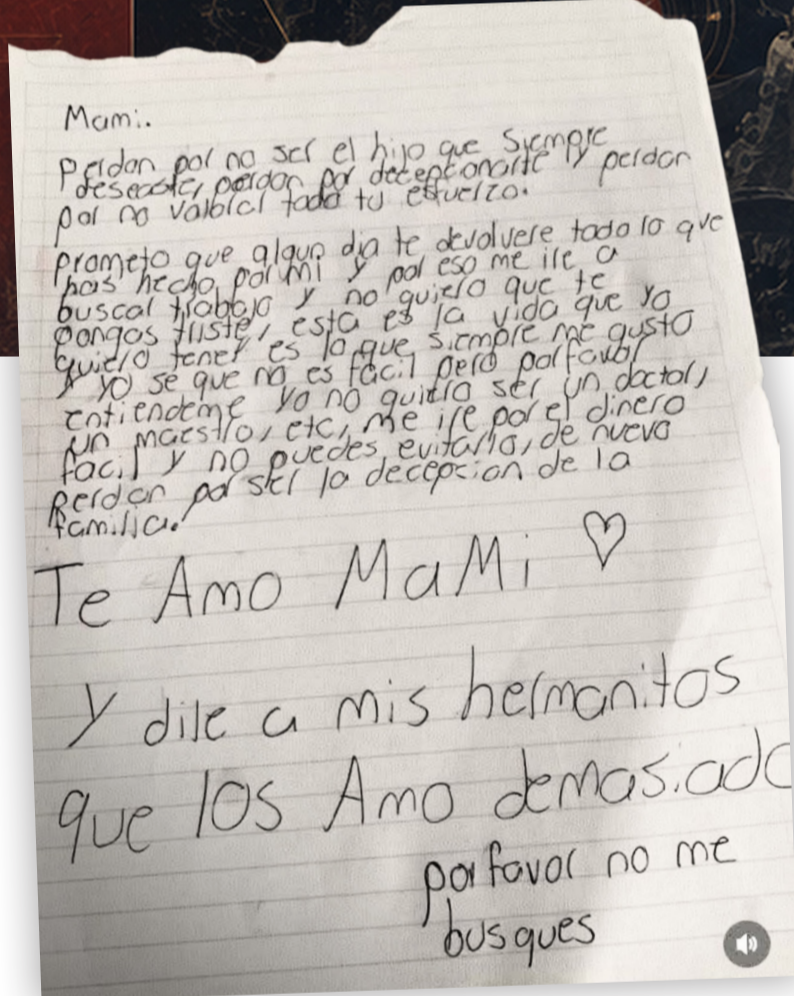 Mami.
Perdon por no ser el hijo que Siempre
deseaste, perdon por decepcionarte y perdon
por no valorar todo tu esfuerzo.
prometo que algun dia te devolvere todo lo que
has hecho por mi y por eso me ire a
buscar trabajo y no quiero que te
pongas triste, esta es la vida que yo
quiero tener es lo que siempre me gusto
y yo se que no es facil pero porfavor
entiendeme yo no quiero ser un doctor,
un maestro, etc, me ire por el dinero
facil y no puedes evitarlo, de nuevo
Perdon por ser la decepcion de la
familia.
Te Amo MaMi
Y dile a mis hermanitos
que los Amo demasiado
porfavor no me
busques